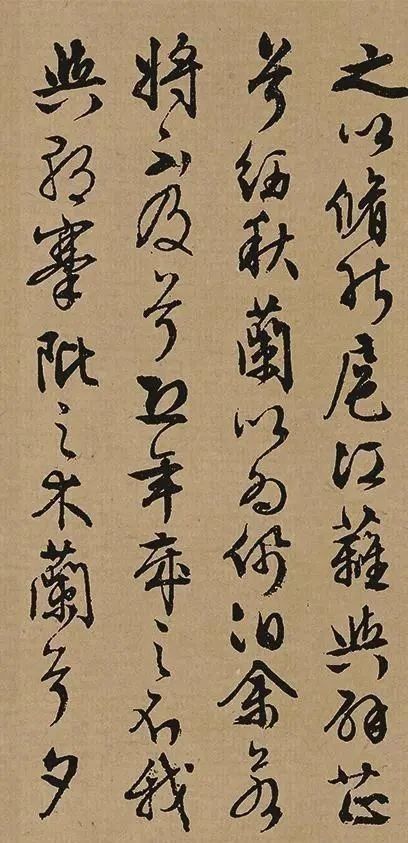 之以脩能扈江蘺與辟芷
兮紉秋蘭以為佩汩余若
將不及兮恐年歲之不我
與朝搴阰之木蘭兮夕